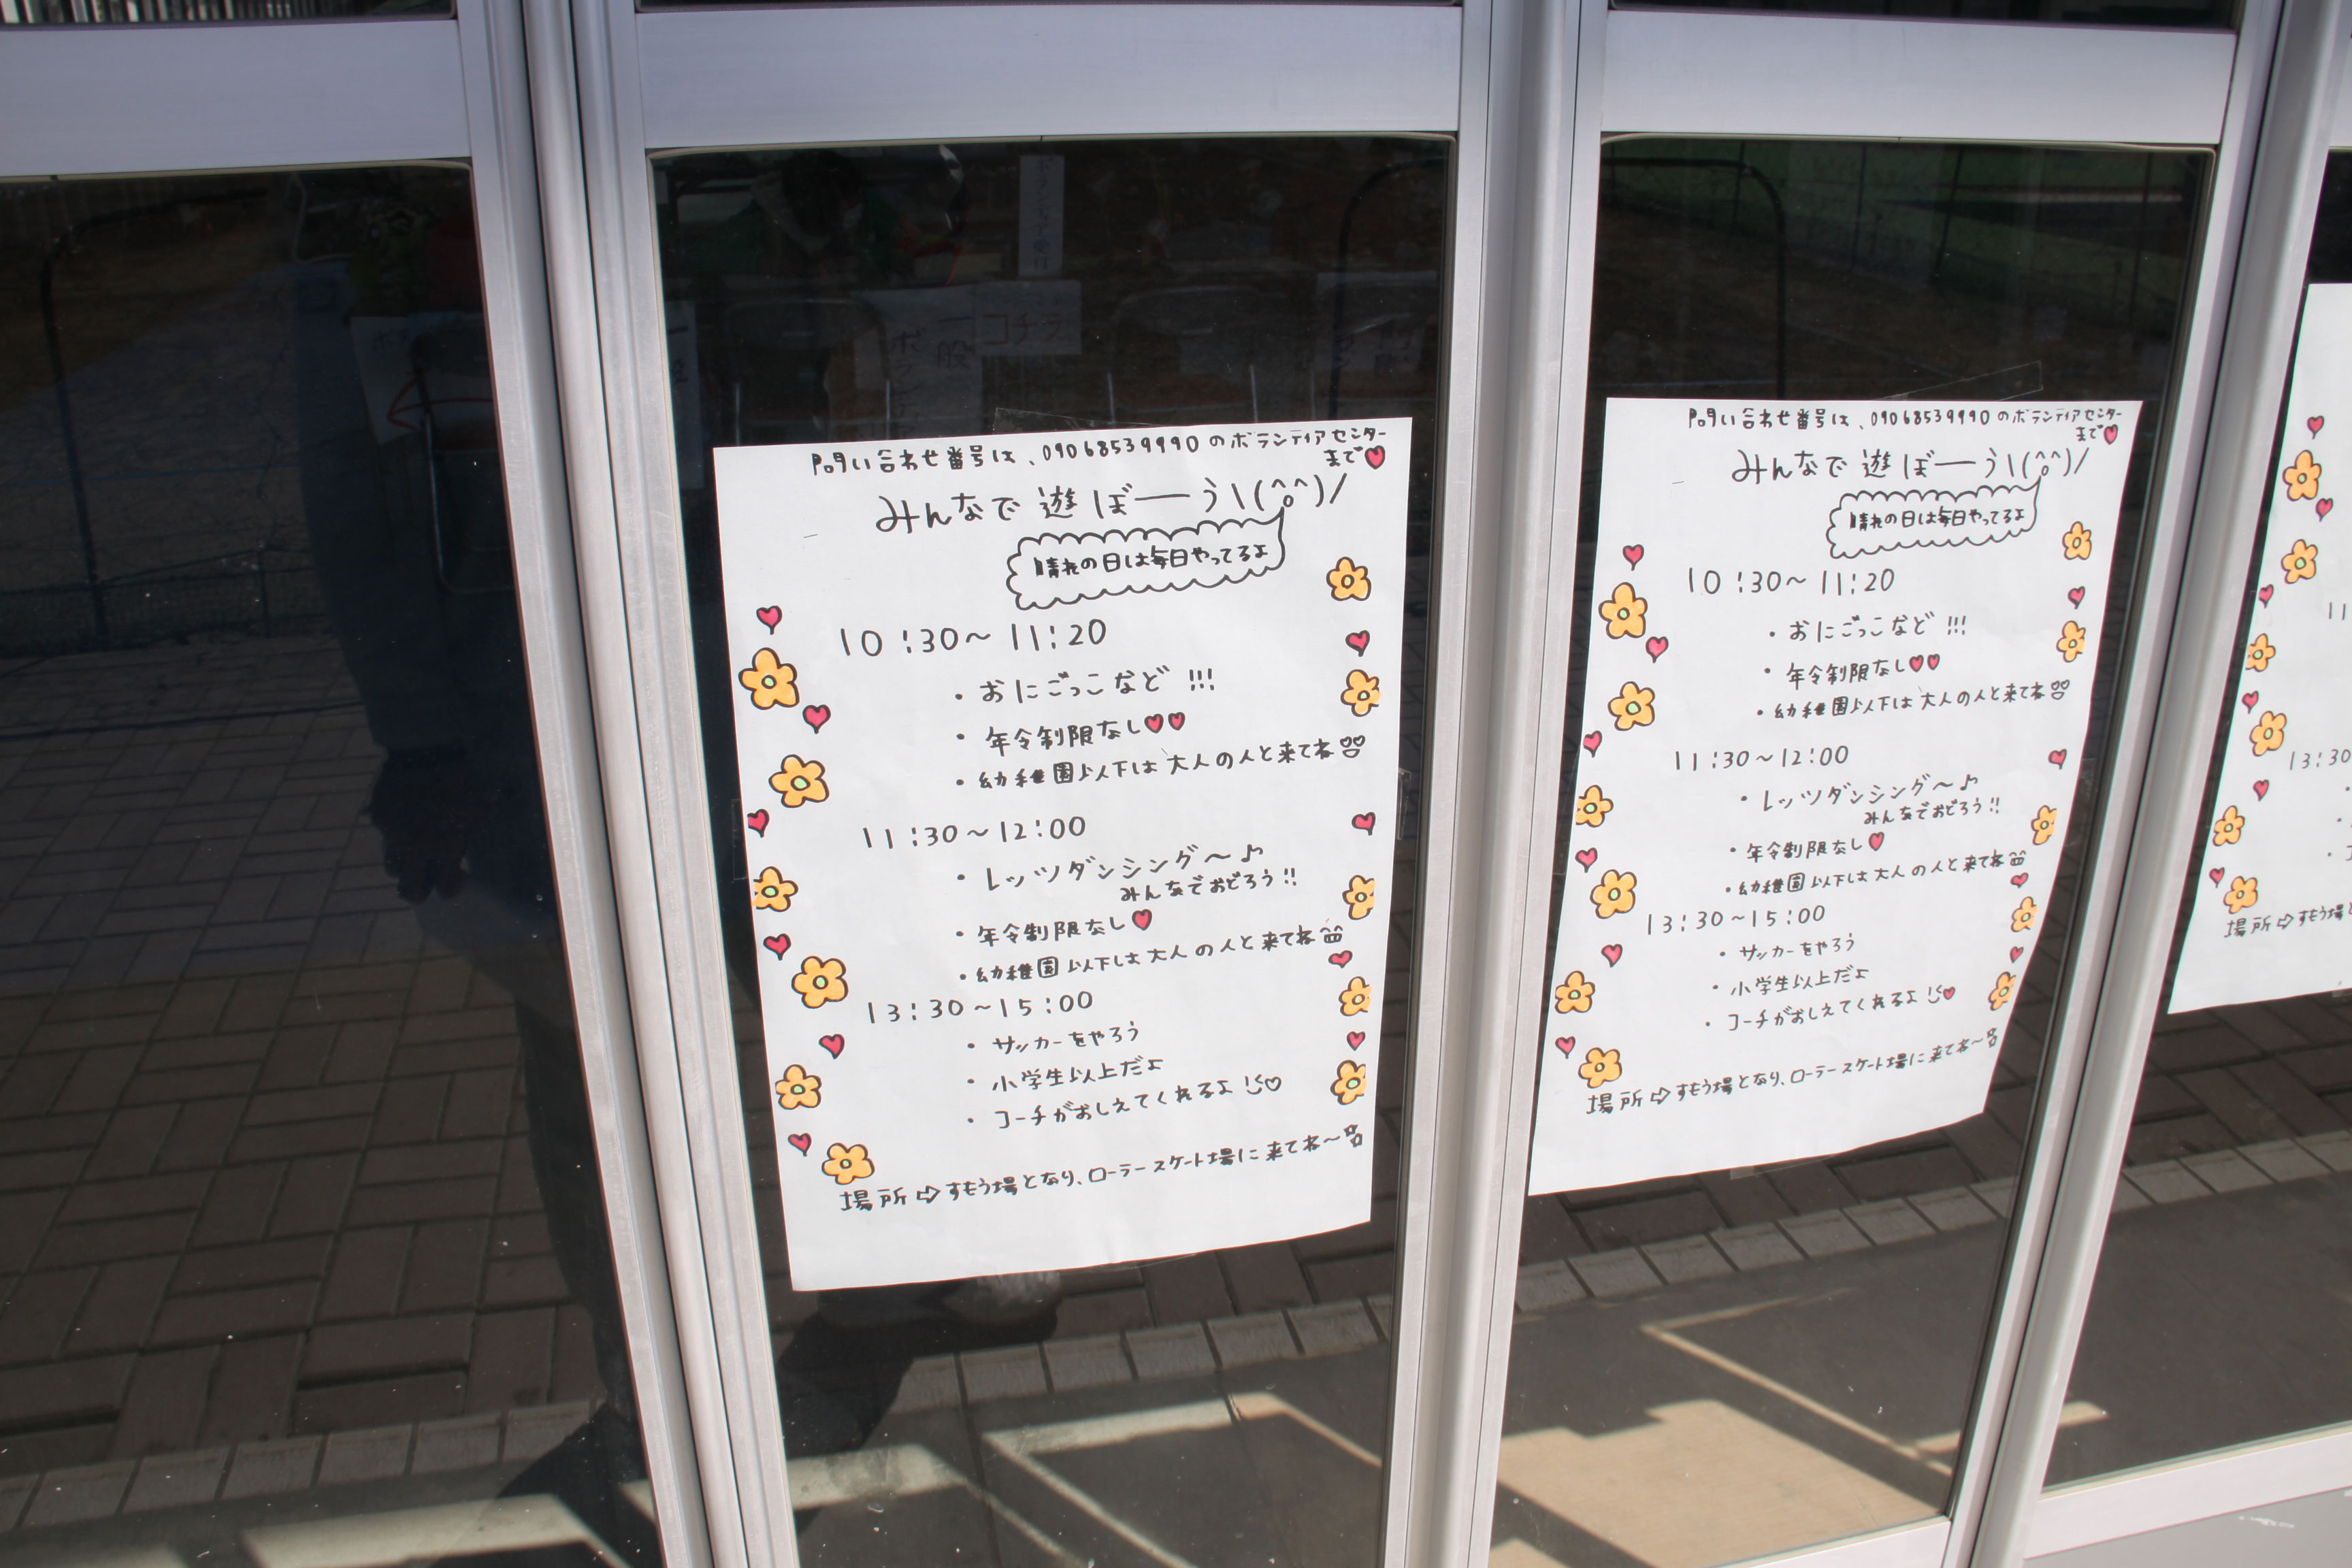 コチラ
一般
問い合わせ番号は、09068539990のボランティアセンター
まで♥
みんなで遊ぼーう\(^o^)/
晴れの日は毎日やってるよ
10:30〜11:20
・おにごっこなど!!!
・年令制限なし♥♥
・幼稚園以下は大人の人と来てね
11:30〜12:00
・レッツダンシング〜♪
みんなでおどろう!!
・年令制限なし♥
・幼稚園以下は大人の人と来てね
13:30〜15:00
・サッカーをやろう
・小学生以上だよ
・コーチがおしえてくれるよ♡
場所⇨すもう場となり、ローラースケート場に来てね〜
問い合わせ番号は、09068539990のボランティアセンター
まで♥
みんなで遊ぼーう\(^o^)/
晴れの日は毎日やってるよ
10:30〜11:20
・おにごっこなど!!!
・年令制限なし♥♥
・幼稚園以下は大人の人と来てね
11:30〜12:00
・レッツダンシング〜♪
みんなでおどろう!!
・年令制限なし♥
・幼稚園以下は大人の人と来てね
13:30〜15:00
・サッカーをやろう
・小学生以上だよ
・コーチがおしえてくれるよ♥
場所⇨すもう場となり、ローラースケート場に来てね〜
11
13:30
場所⇨すもう場と